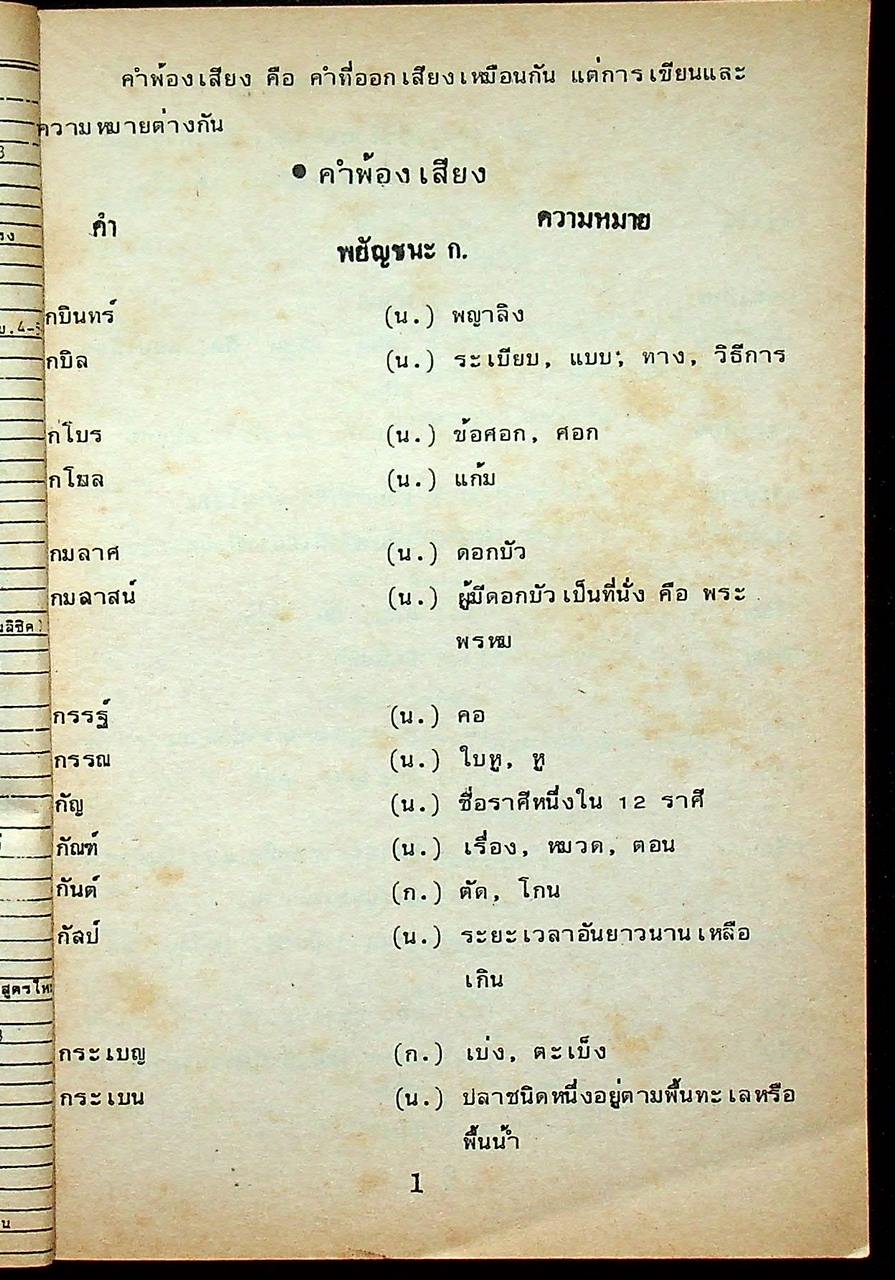 คำพ้องเสียง คือ คำที่ออกเสียงเหมือนกัน แต่การเขียนและ
ความหมายต่างกัน
• คำพ้องเสียง
คำ ความหมาย
พยัญชนะ ก.
กบินทร์ (น.) พญาลิง
กบิล (น.) ระเบียบ, แบบ, ทาง, วิธีการ
กโบร (น.) ข้อศอก, ศอก
กโบล (น.) แก้ม
กมลาศ (น.) ดอกบัว
กมลาสน์ (น.) ผู้มีดอกบัวเป็นที่นั่ง คือ พระ
พรหม
กรรฐ์ (น.) คอ
กรรณ (น.) ใบหู, หู
กัญ (น.) ชื่อราศีหนึ่งใน 12 ราศี
กัณฑ์ (น.) เรื่อง, หมวด, ตอน
กันต์ (ก.) ตัด, โกน
กัลป์ (น.) ระยะเวลาอันยาวนานเหลือ
เกิน
กระเบญ (ก.) เบ่ง, ตะเบ็ง
กระเบน (น.) ปลาชนิดหนึ่งอยู่ตามพื้นทะเลหรือ
พื้นน้ำ
1